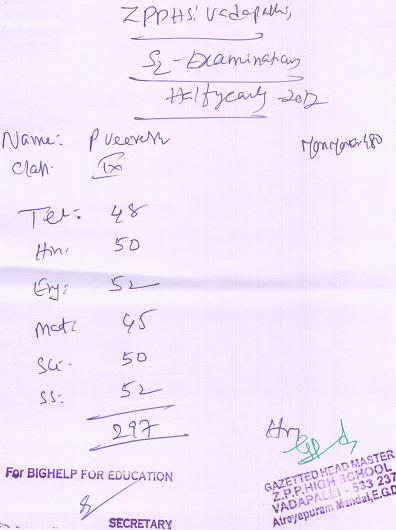 ZPPHS: Vadapalli,
S2 - Examination
Halfyearly - 2012
Name: P Veeresh
Class: IX
Tel: 48
Hin: 50
Eng: 52
Mat: 45
Sci: 50
SS: 52
297
For BIGHELP FOR EDUCATION
SECRETARY
GAZETTED HEAD MASTER
Z.P.P.HIGH SCHOOL
VADAPALLI - 533 237
Atreyapuram Mandal, E.G.D